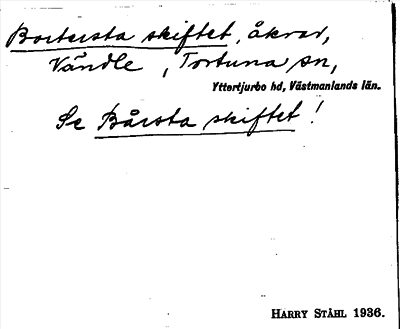 Bortersta skiftet, åkrar,
Vändle, Tortuna sn,
Yttertjurbo hd, Västmanlands län.
Se Bårsta skiftet!
HARRY STÅHL 1936.